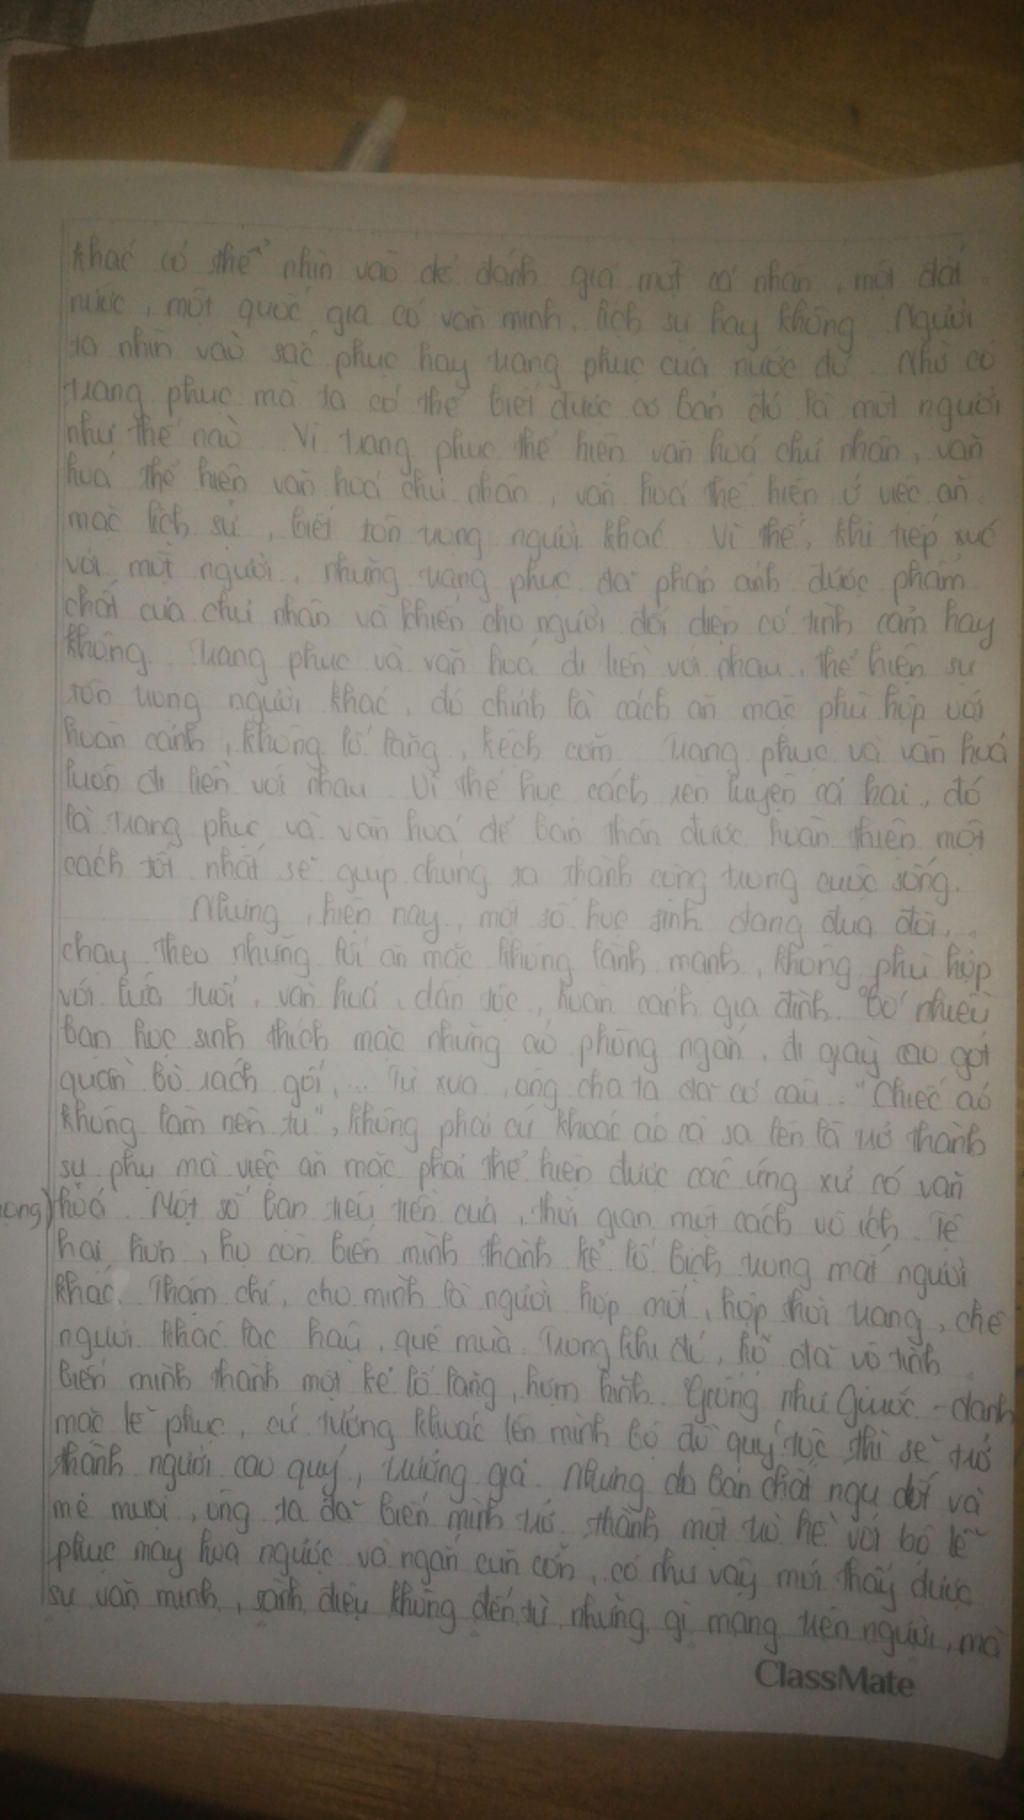 khác có thể nhìn vào để đánh giá một cá nhân, một đất
nước, một quốc gia có văn minh, lịch sự hay không. Người
ta nhìn vào sắc phục hay trang phục của nước đó. Nhờ có
trang phục mà ta có thể biết được cơ bản đó là một người
như thế nào. Vì trang phục thể hiện văn hoá chủ nhân, văn
hoá thể hiện văn hoá chủ nhân, văn hoá thể hiện ở việc ăn
mặc lịch sự, biết tôn trọng người khác. Vì thế, khi tiếp xúc
với một người, những trang phục đã phản ánh được phẩm
chất của chủ nhân và khiến cho người đối diện có tình cảm hay
không. Trang phục và văn hoá đi liền với nhau, thể hiện sự
tôn trọng người khác, đó chính là cách ăn mặc phù hợp với
hoàn cảnh, không lố lăng, kệch cỡm. Trang phục và văn hoá
luôn đi liền với nhau. Vì thế học cách rèn luyện cả hai, đó
là trang phục và văn hoá để bản thân được hoàn thiện một
cách tốt nhất sẽ giúp chúng ta thành công trong cuộc sống.
Nhưng, hiện nay, một số học sinh đang đua đòi,
chạy theo những lối ăn mặc không lành mạnh, không phù hợp
với lứa tuổi, văn hoá, dân tộc, hoàn cảnh gia đình. Có nhiều
bạn học sinh thích mặc những áo phông ngắn, đi giày cao gót
quần bò rách gối,... Từ xưa, ông cha ta đã có câu: "Chiếc áo
không làm nên tu", không phải cứ khoác áo cà sa lên là trở thành
sư phụ mà việc ăn mặc phải thể hiện được các ứng xử có văn
hoá. Một số bạn tiêu tiền của, thời gian một cách vô ích. Tệ
hại hơn, họ còn biến mình thành kẻ lố bịch trong mắt người
khác. Thậm chí, cho mình là người hợp mới, hợp thời trang, chê
người khác lạc hậu, quê mùa. Trong khi đó, họ đã vô tình
biến mình thành một kẻ lố lăng, hợm hĩnh. Giống như Giuốc-đanh
mặc lễ phục, cứ tưởng khoác lên mình bộ đồ quý tộc thì sẽ trở
thành người cao quý, trưởng giả. Nhưng do bản chất ngu dốt và
mê muội, ông ta đã biến mình trở thành một trò hề với bộ lễ
phục may hoa ngược và ngắn cũn cỡn, có như vậy mới thấy được
sự văn minh, sành điệu không đến từ những gì mang trên người, mà
ClassMate